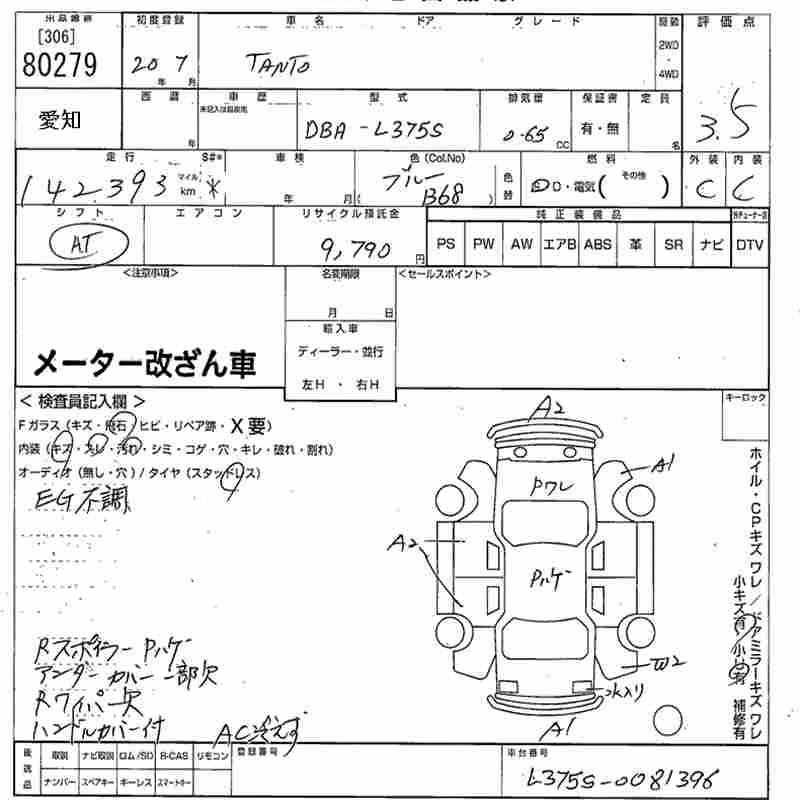 [306]
80279
初度登録
20 年 7 月
車名
TANTO
ドア
グレード
2WD
4WD
評価点
3.5
愛知
西暦
年
車歴
未記入は自家用
型式
DBA-L375S
排気量
0.65 CC
保証書
有・無
定員
名
走行
S#*
142,393 マイル km *
車検
年 月
色(Col.No)
ブルー
( B68 )
色替
燃料
D・電気( その他 )
外装
C
内装
C
シフト
AT
エアコン
リサイクル預託金
9,790 円
純正装備品
PS PW AW エアB ABS 革 SR ナビ
DTV
<注意事項>
メーター改ざん車
名変期限
月 日
輸入車
ディーラー・並行
左H ・ 右H
<セールスポイント>
キーロック
<検査員記入欄>
Fガラス(キズ・飛石・ヒビ・リペア跡・X要)
内装(キズ・スレ・汚れ・シミ・コゲ・穴・キレ・破れ・割れ)
オーディオ(無し・穴)/タイヤ(スタッドレス)
EG不調
Rスポイラー Pハゲ
アンダーカバー一部欠
Rワイパー欠
ハンドルカバー付
AC冷えず
A2
Pワレ
A1
A2
Pハゲ
W2
水入り
A1
ホイル・CPキズ ワレ/ドアミラーキズ ワレ
小キズ有/小凹有 補修有
後送品
取説 ナビ取説 ロム/SD B-CAS リモコン
ナンバー スペアキー キーレス スマートキー
登録番号
車台番号
L375S-0081396